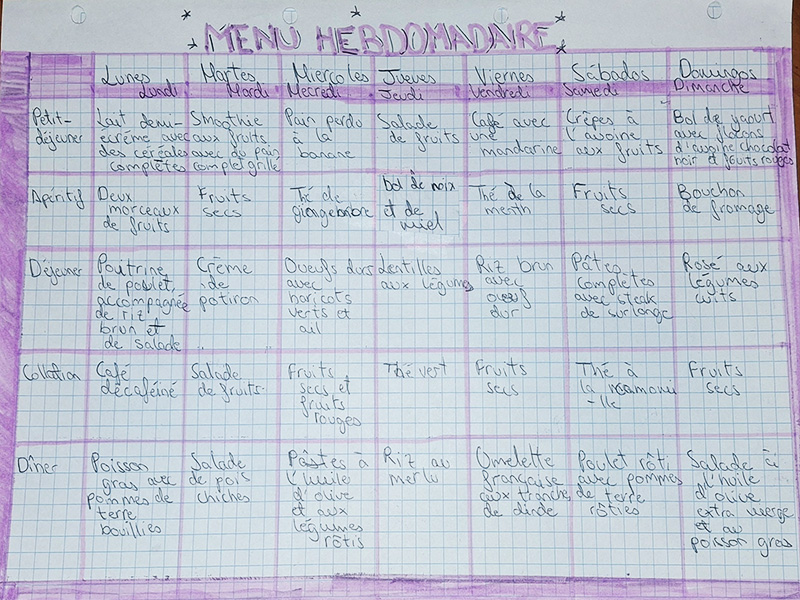 MENU HEBDOMADAIRE
Lunes Martes Miercoles Jueves Viernes Sábados Domingos
Lundi Mardi Mecredi Jeudi Vendredi Samedi Dimanche
Petit-
déjeuner
Lait demi-
écrémé avec
des céréales
complètes
Smoothie
aux fruits
avec du pain
complet grillé
Pain perdu
à la
banane
Salade
de fruits
Café avec
une
mandarine
Crêpes à
l'avoine
aux fruits
Bol de yaourt
avec flocons
d'avoine chocolat
noir et fruits rouges
Apéritif
Deux
morceaux
de fruits
Fruits
secs
Thé de
gingembre
bol de noix
et de
miel
Thé de la
menth
Fruits
secs
Bouchon
de fromage
Déjeuner
Poitrine
de poulet,
accompagnée
de riz
brun et
de salade
Crème
de
potiron
Oueufs durs
avec
haricots
verts et
ail
Lentilles
aux légumes
Riz brun
avec
oeuf
dur
Pâtes
complètes
avec steak
de surlonge
Rosé aux
légumes
cuits
Collation
Café
décaféiné
Salade
de fruits
Fruits
secs et
fruits
rouges
Thé vert
Fruits
secs
Thé à
la
-lle
Fruits
secs
Dîner
Poisson
gras avec
pommes de
terre
bouillies
Salade
de pois
chiches
Pâstes à
l'huile
d'olive
et aux
légumes
rôtis
Riz au
merlu
Omelette
française
aux tranches
de dinde
Poulet rôti
avec pommes
de terre
rôties
Salade à
l'huile
d'olive
extra vierge
et au
poisson gras